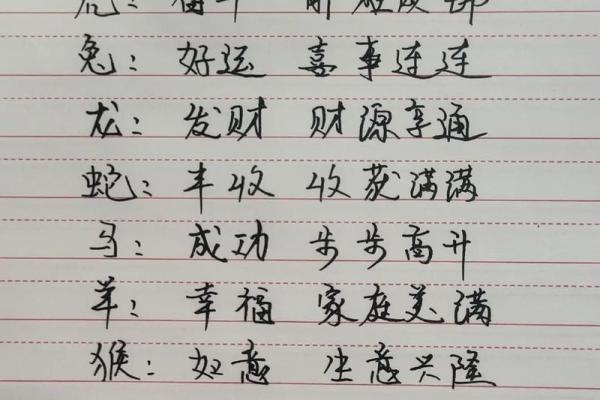 虎：奋斗
兔：好运 喜事连连
龙：发财 财源亨通
蛇：丰收 收获满满
马：成功 步步高升
羊：幸福 家庭美满
猴：如意 生意兴隆